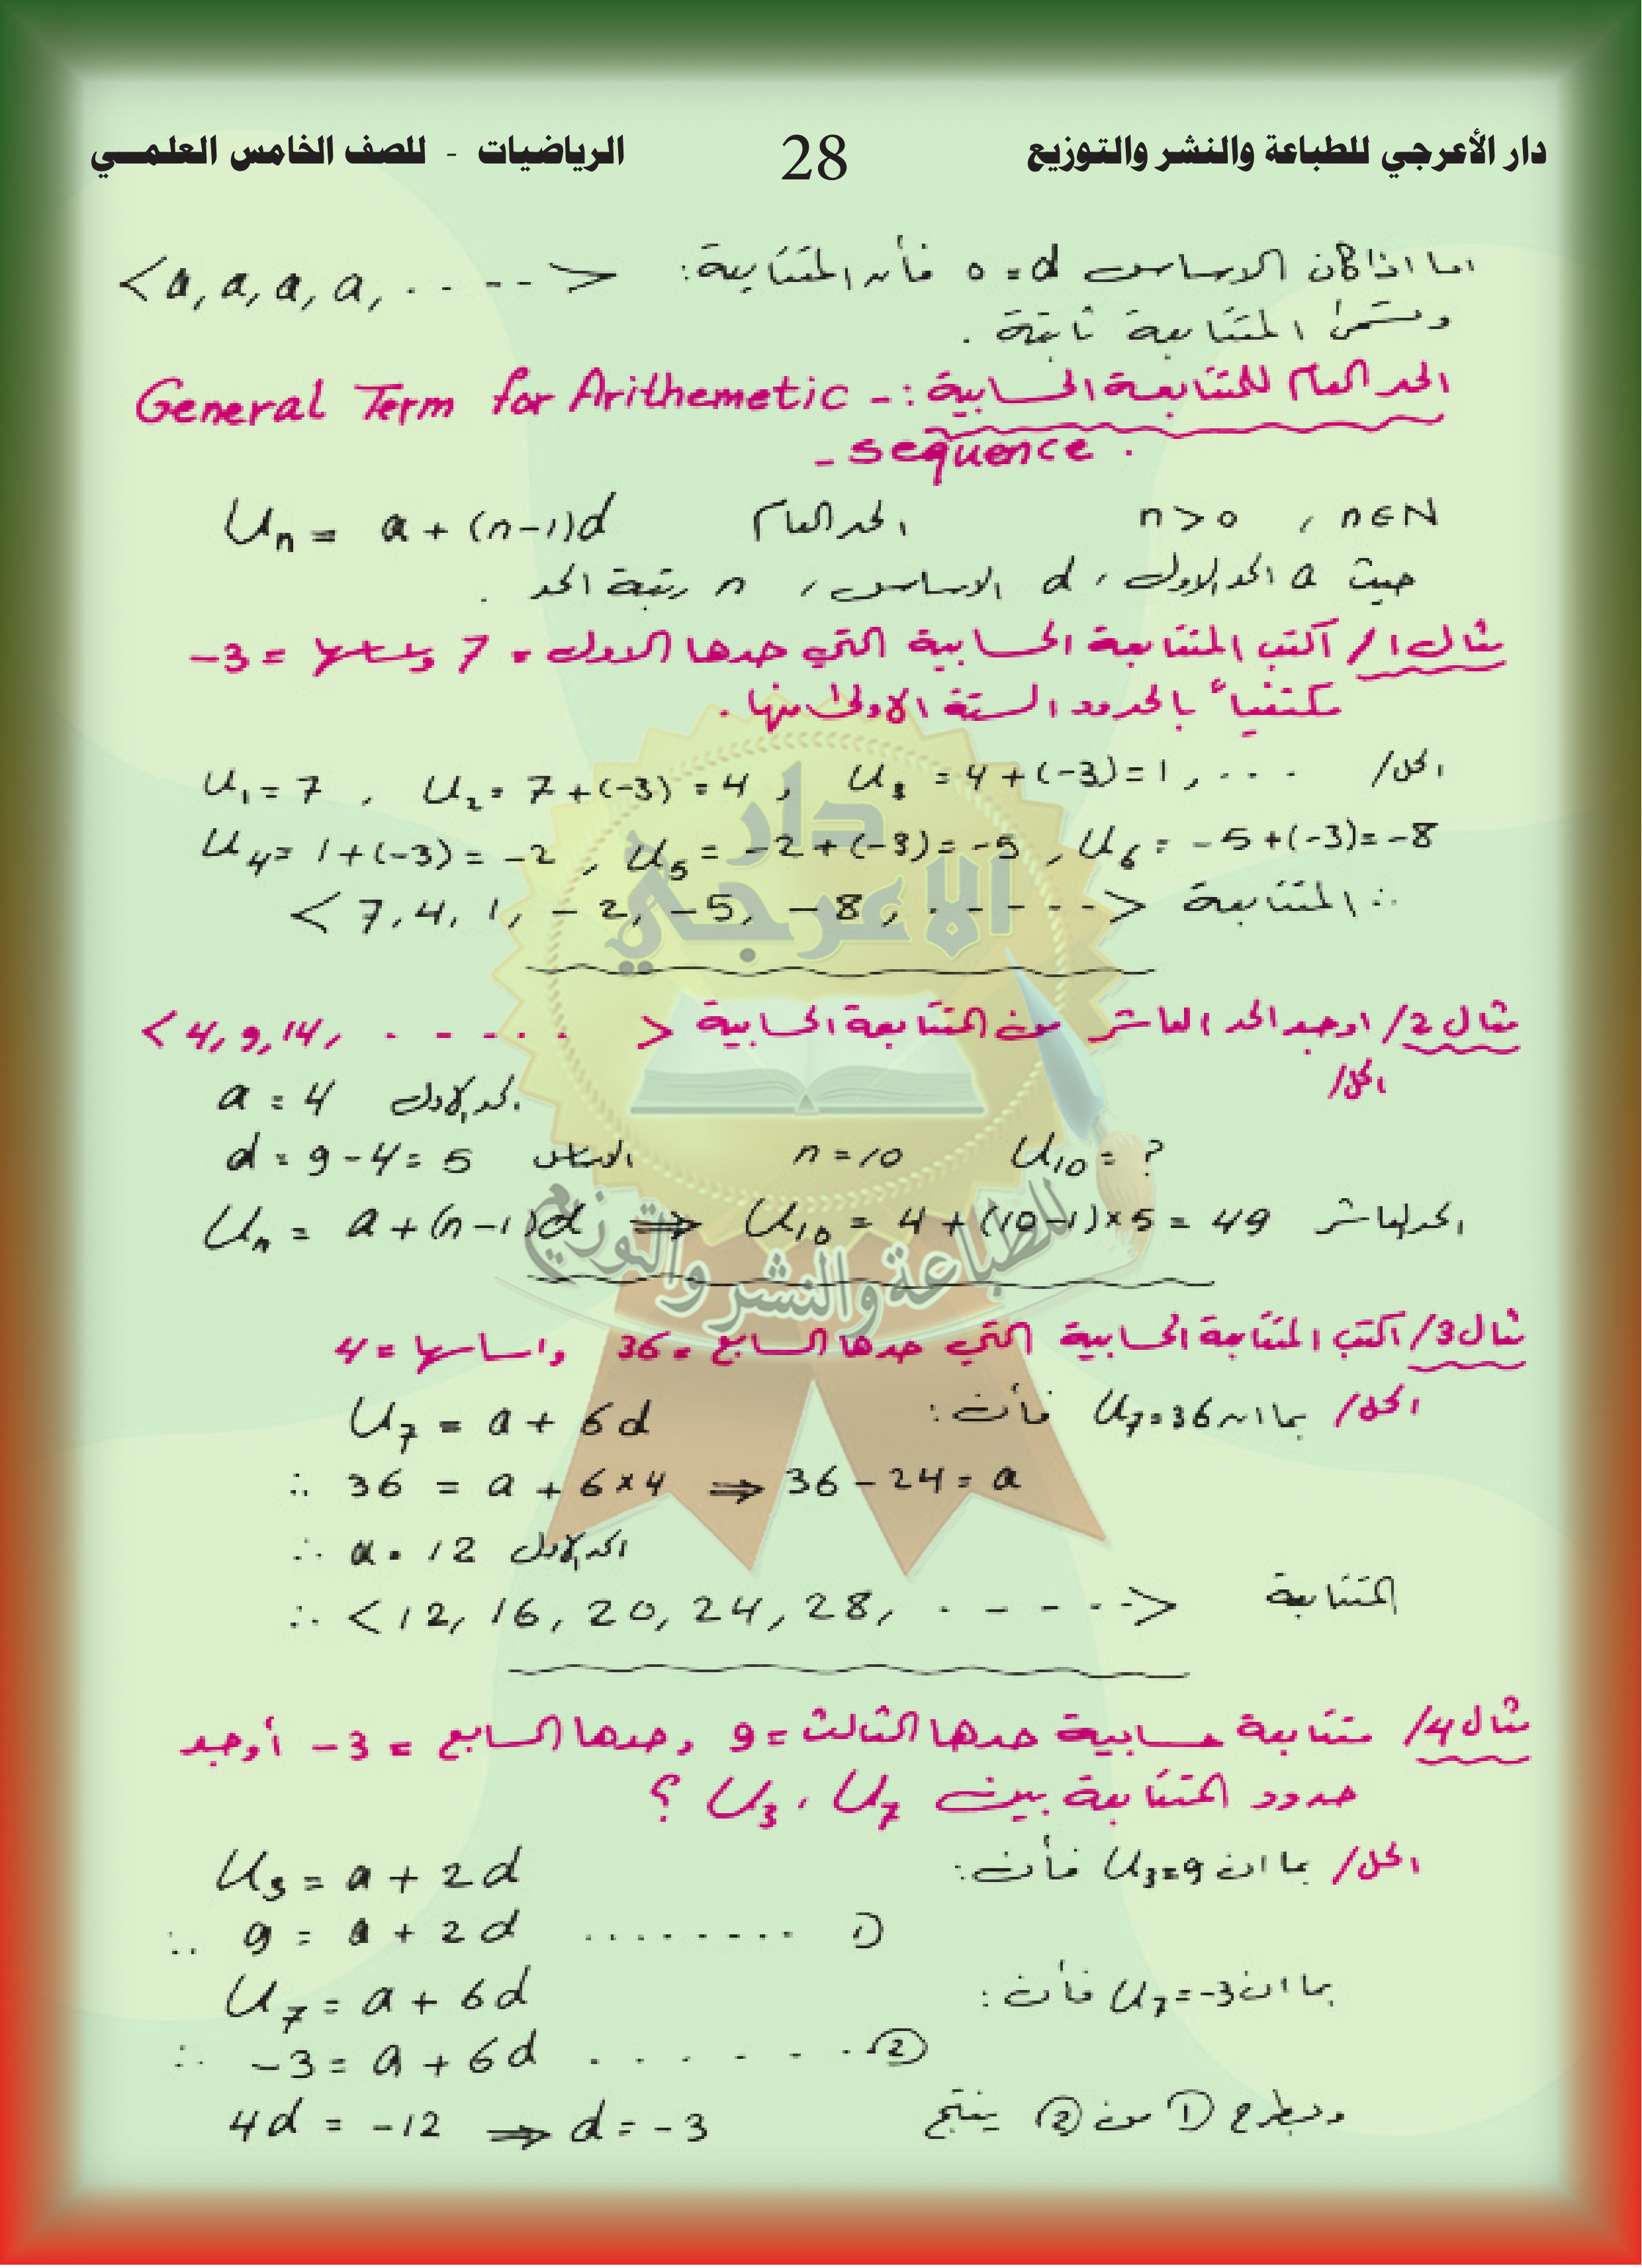 دار الأعرجي للطباعة والنشر والتوزيع 28 الرياضيات - للصف الخامس العلمـــي
اما اذا كان الاساس d = 0 فأن المتتابعة: <a, a, a, a, . . - - ->
وتسمى المتتابعة ثابتة .
الحد العام للمتتابعة الحسابية :- General Term for Arithemetic
- sequence .
Un = a + (n-1)d الحد العام n > 0 , n∈N
حيث a الحد الاول ، d الاساس ، n رتبة الحد .
مثال 1/ اكتب المتتابعة الحسابية التي حدها الاول = 7 واساسها = -3
مكتفياً بالحدود الستة الاولى منها .
الحل/ U1 = 7 , U2 = 7+(-3) = 4 , U3 = 4+(-3)=1 , . . .
U4 = 1+(-3) = -2 , U5 = -2+(-3)= -5 , U6 = -5+(-3)= -8
∴ المتتابعة < 7, 4, 1, -2, -5, -8, . - - - - >
مثال 2/ اوجد الحد العاشر من المتتابعة الحسابية < 4, 9, 14, . - - . . >
الحل/
a = 4 الحد الاول
d = 9 - 4 = 5 الاساس n = 10 U10 = ?
Un = a + (n-1)d ⇒ U10 = 4 + (10-1)×5 = 49 الحد العاشر
مثال 3/ اكتب المتتابعة الحسابية التي حدها السابع = 36 واساسها = 4
الحل/ بما ان U7=36 فأن :
U7 = a + 6d
∴ 36 = a + 6×4 ⇒ 36 - 24 = a
∴ a = 12 الحد الاول
المتتابعة ∴ < 12, 16, 20, 24, 28, . - - - - >
مثال 4/ متتابعة حسابية حدها الثالث = 9 وحدها السابع = -3 أوجد
حدود المتتابعة بين U3 ، U7 ؟
الحل/ بما ان U3=9 فأن :
U3 = a + 2d
∴ 9 = a + 2d . . . . . . . . ①
بما ان U7=-3 فأن :
U7 = a + 6d
∴ -3 = a + 6d . . . . . . . ②
وبطرح ① من ② ينتج
4d = -12 ⇒ d = -3
دار
الاعرجي
للطباعة والنشر والتوزيع